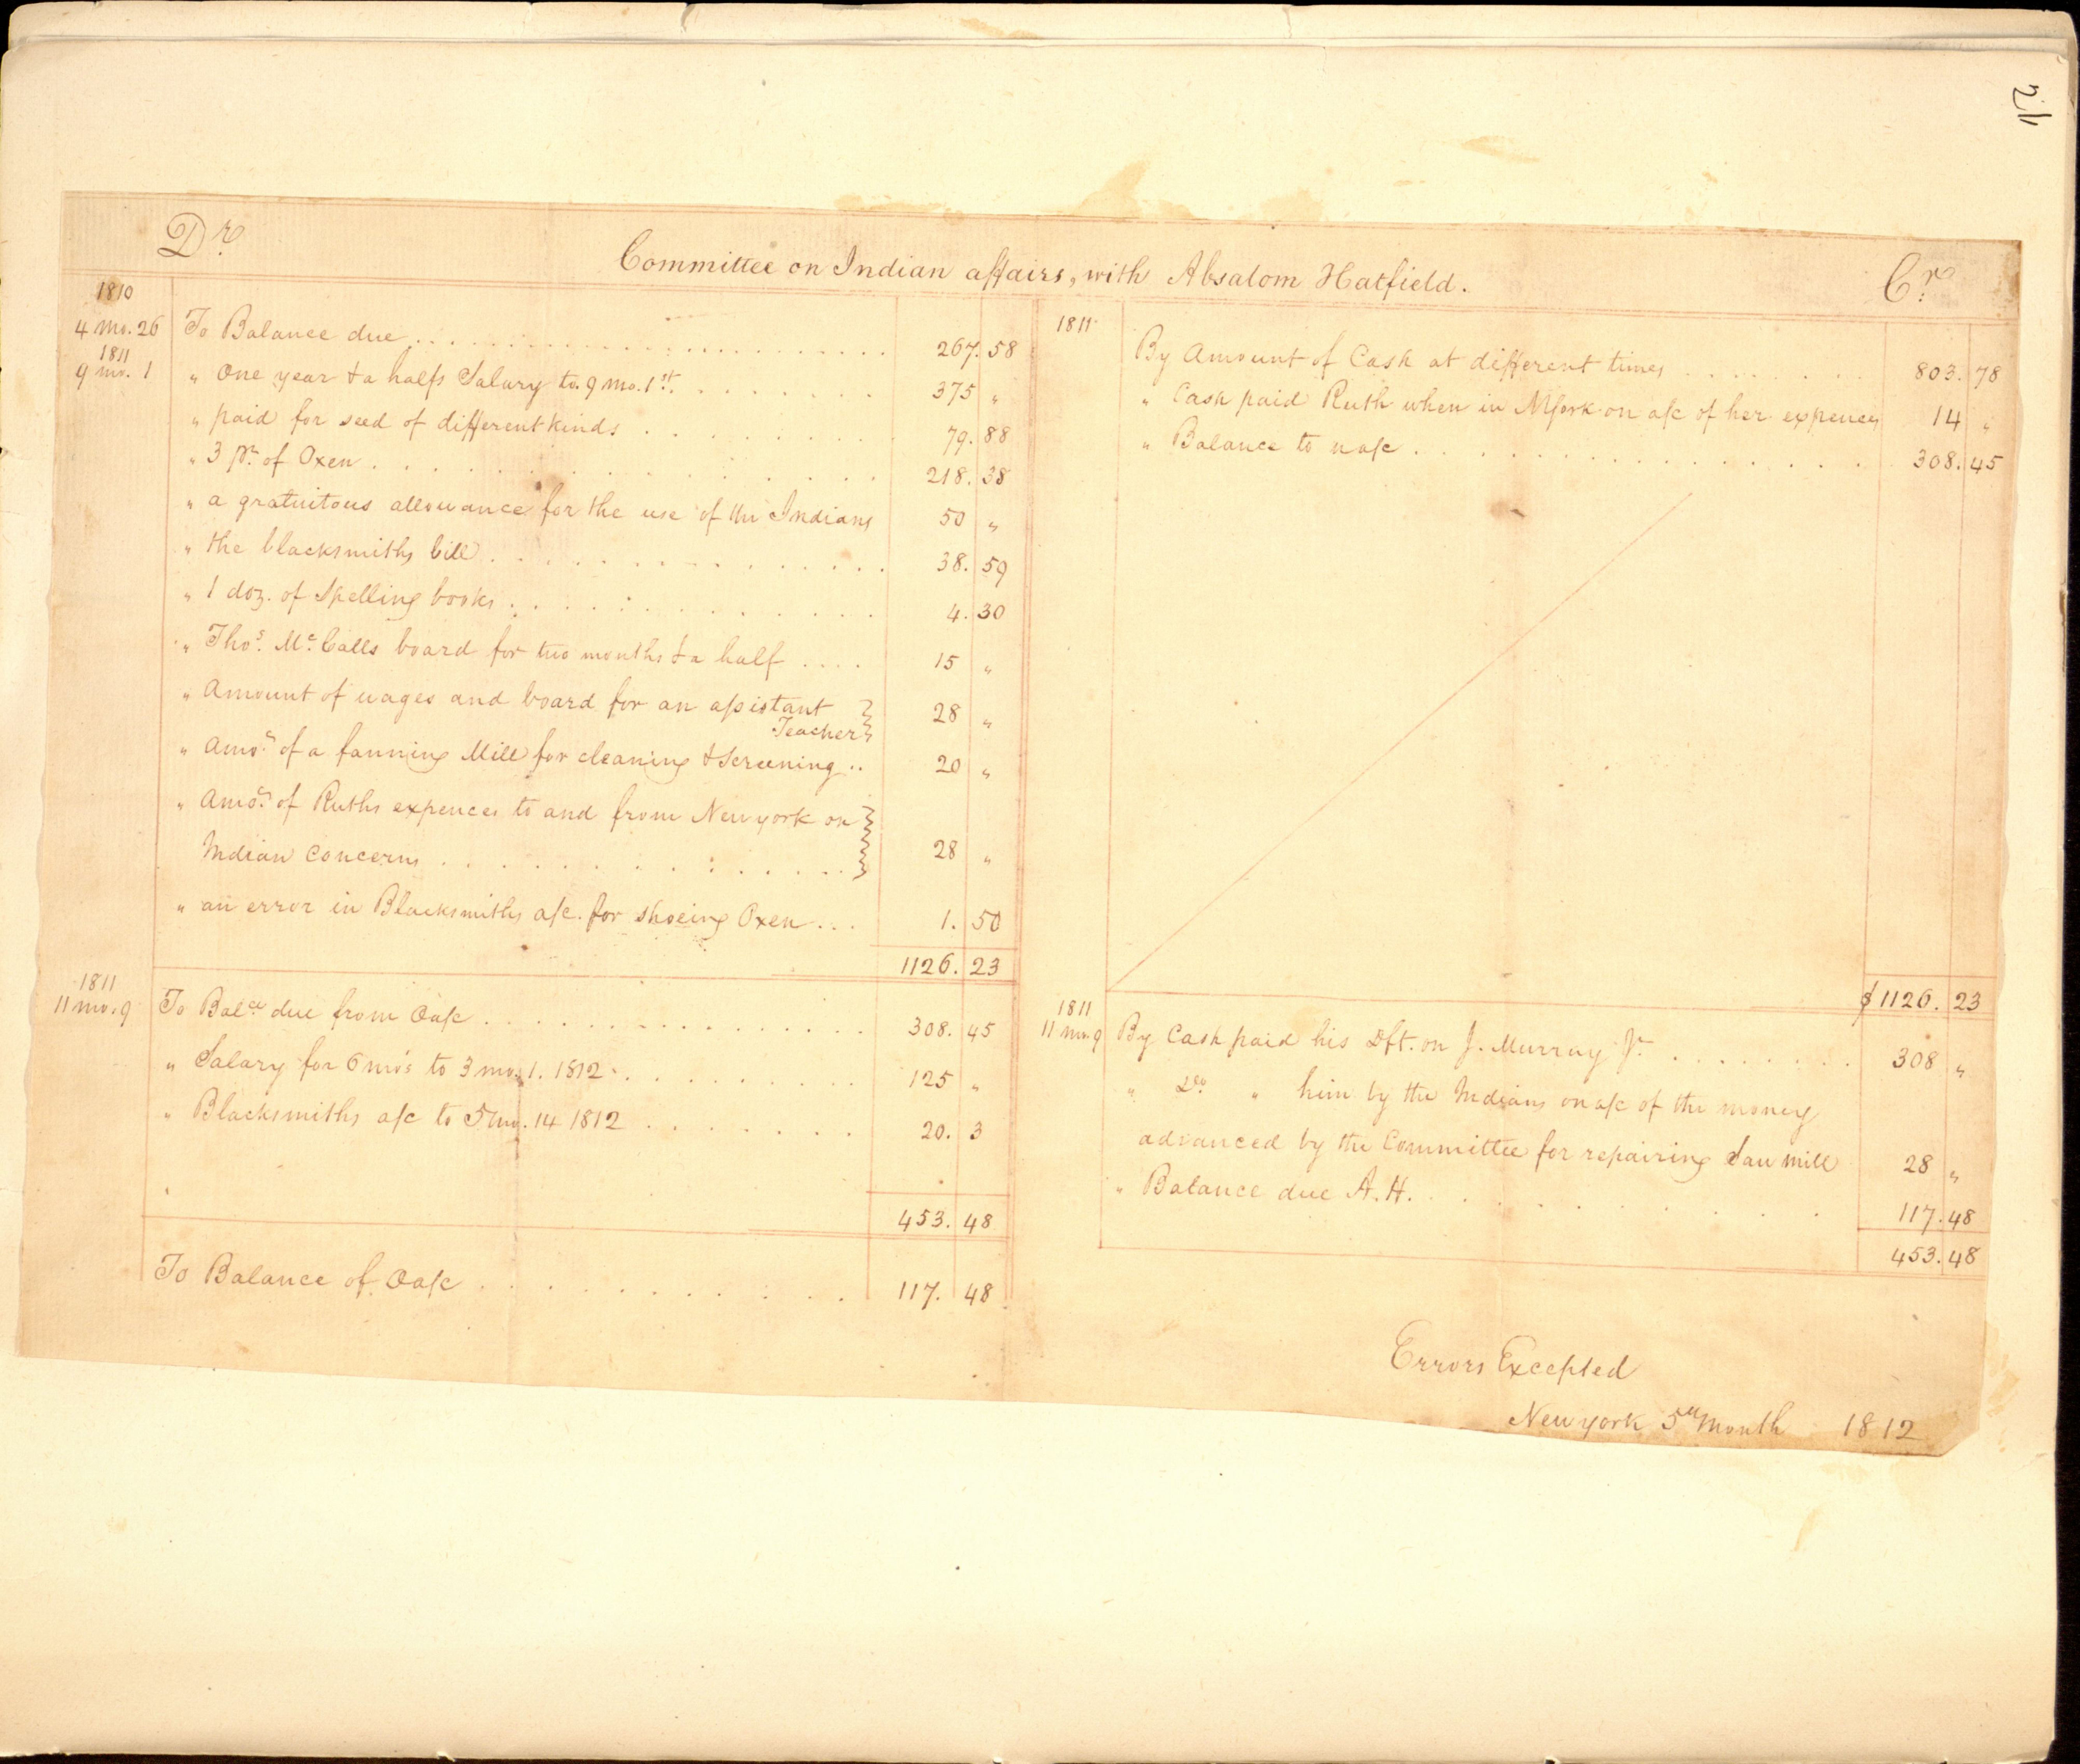 24
Dr.
Committee on Indian affairs, with Absalom Hatfield.
Cr.
1810
4 mo. 26 To Balance due 267. 58
1811
9 mo. 1 " One year & a halfs Salary to 9 mo. 1st. 375 "
" paid for seed of different kinds 79. 88
" 3 pr. of Oxen 218. 38
" a gratuitous allowance for the use of the Indians 50 "
" the blacksmiths bill 38. 59
" 1 doz. of Spelling books 4. 30
" Thos. Mc. Calls board for two months & a half 15 "
" Amount of wages and board for an assistant
Teacher 28 "
" Amot. of a fanning Mill for cleaning & Screening 20 "
" Amot. of Ruths expences to and from New york on
Indian Concerns 28 "
" an error in Blacksmiths a/c. for shoeing Oxen 1. 50
1126. 23
1811
11 mo. 9 To Balce. due from O a/c 308. 45
" Salary for 6 mo's to 3 mo. 1. 1812 125 "
" Blacksmiths a/c to 5 mo. 14 1812 20. 3
453. 48
To Balance of O a/c 117. 48
1811
By Amount of Cash at different times 803. 78
" Cash paid Ruth when in NYork on a/c of her expences 14 "
" Balance to n a/c 308. 45
$ 1126. 23
1811
11 mo. 9 By Cash paid his Dft. on J. Murray Jr. 308 "
" Do. " him by the Indians on a/c of the money
advanced by the Committee for repairing Saw mill 28 "
" Balance due A. H. 117. 48
453. 48
Errors Excepted
New york 5th Month 1812